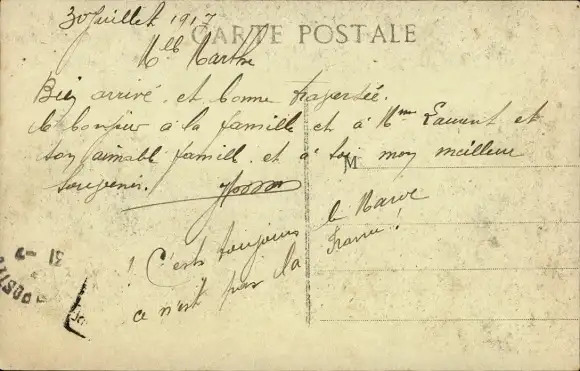 30 Juillet 1917
CARTE POSTALE
Mlle Marthe
Bien arrivé et bonne traversée.
le bonjour à la famille et à Mme Laurent et
son aimabl famill et à toi mon meilleur
M
souvenir.
le Havre
! C'est toujours
France !
ce n'est pas la
31 - 7
POSTE